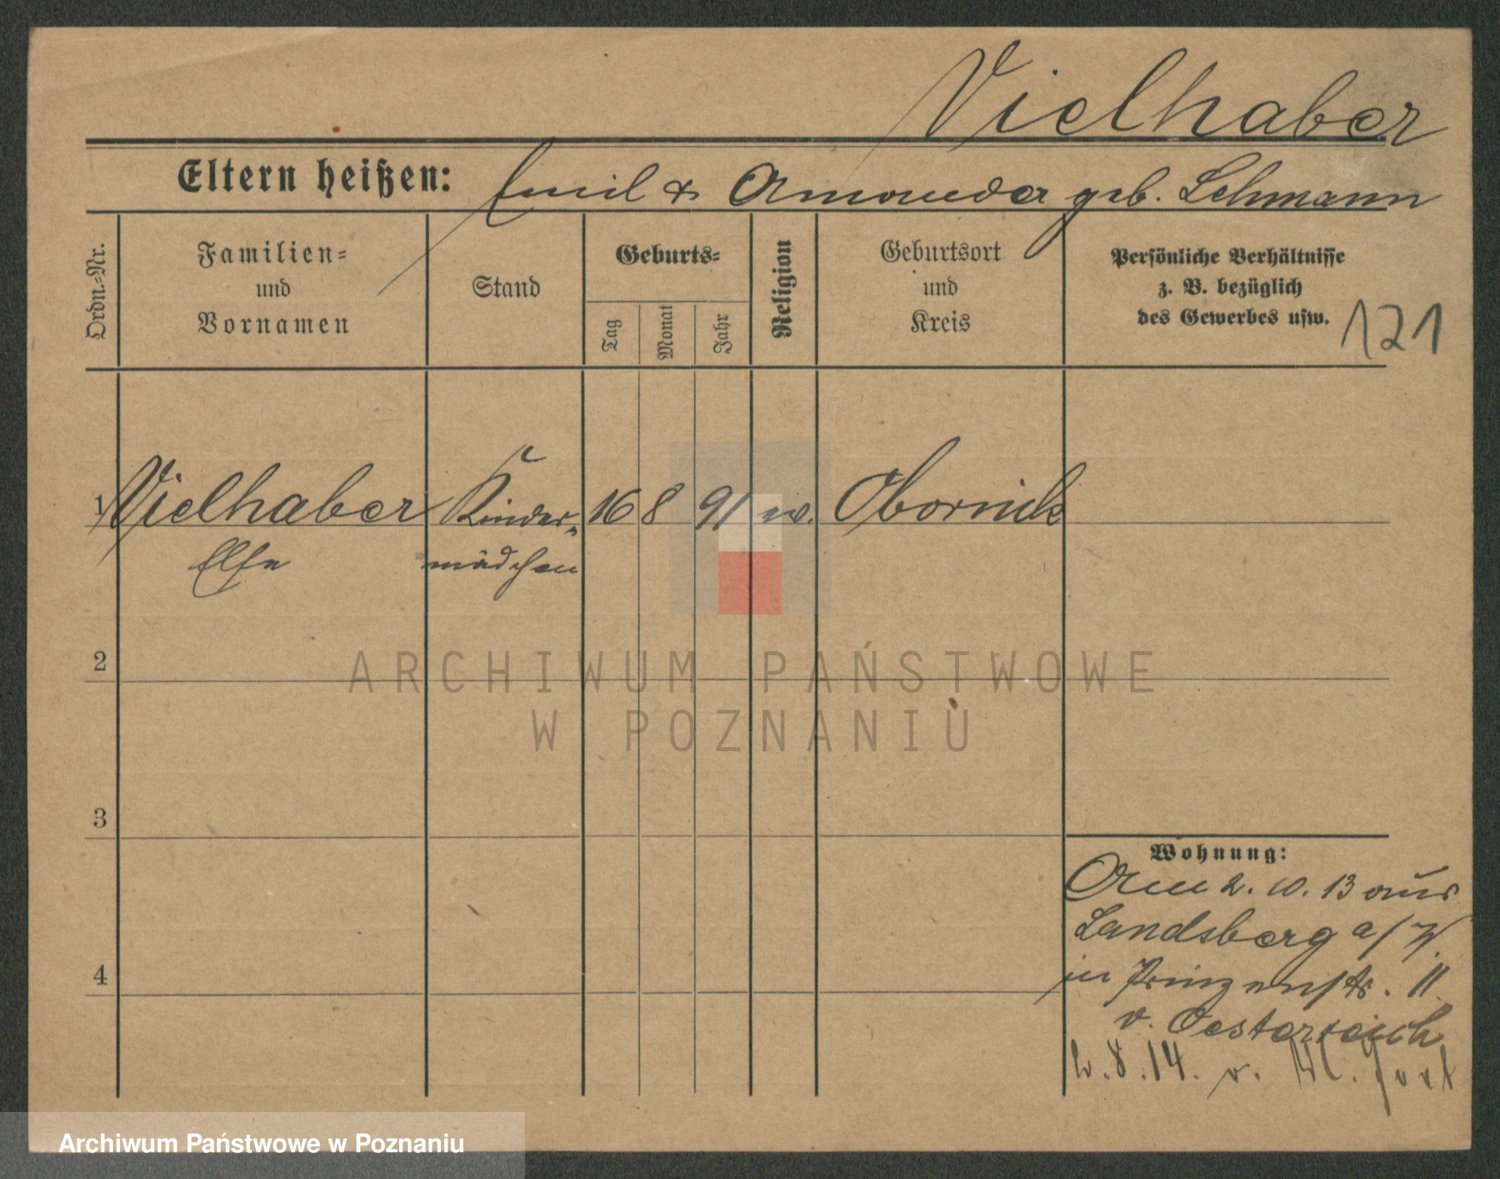 Vielhaber
Eltern heißen: Emil & geb. Lehmann
Ordn.=Nr.
Familien=
und
Vornamen
Stand
Geburts=
Tag
Monat
Jahr
Religion
Geburtsort
und
Kreis
Persönliche Verhältnisse
z. B. bezüglich
des Gewerbes usw.
121
1 Vielhaber Kinder= 16 8 91 ev. Obornick
Else mädchen
2
3
4
Wohnung:
2. 10. 13 aus
Landsberg a/W.
in Prinzenstr. 11
v. Oesterreich
8. 14. v.
ARCHIWUM PAŃSTWOWE
W POZNANIU
Archiwum Państwowe w Poznaniu